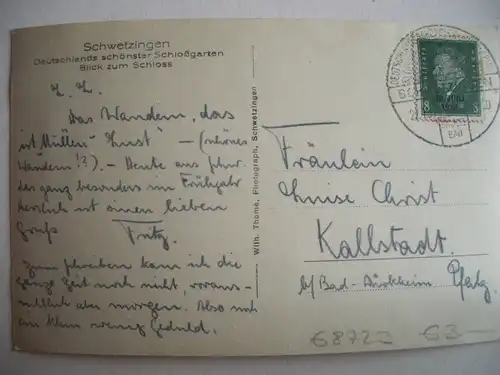 Schwetzingen
Deutschlands schönster Schloßgarten
Blick zum Schloss
L. L.
Das Wandern, das
ist Müllers Lust" – (schönes
Wandern!?). – Heute aus
der ganz besonders im Frühjahr
herrlich ist einen lieben
Gruß Fritz.
Zum schreiben kann ich die
ganze Zeit noch nicht, voraus-
sichtlich aber morgen. Also noch
ein klein wenig Geduld.
Wilh. Thome, Photograph, Schwetzingen
8 8
Fräulein
Luise Christ
Kallstadt.
b/ Bad-Dürkheim Pfalz.
68723 G3–